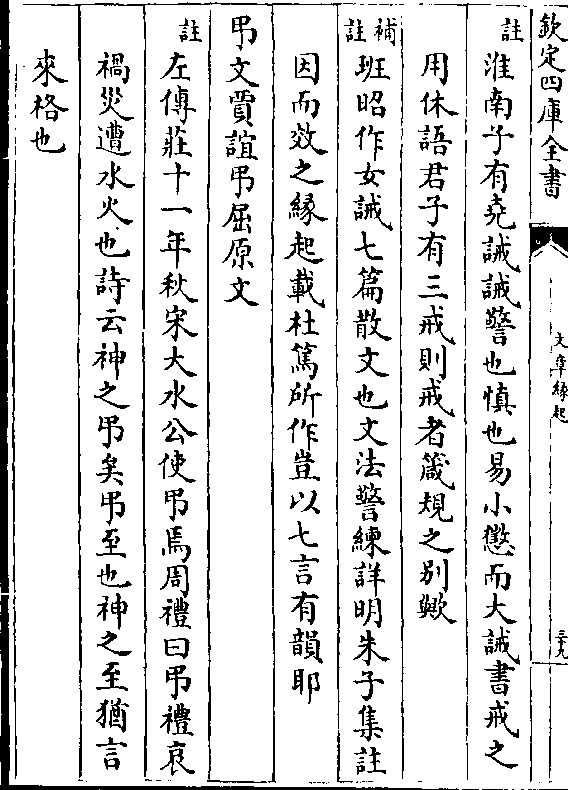 欽定四庫全書
文章緣起
二十九
註
淮南子有堯誡誡警也慎也易小懲而大誡書戒之
用休語君子有三戒則戒者箴規之别歟
補註
班昭作女誡七篇散文也文法警練詳明朱子集註
因而效之緣起載杜篤所作豈以七言有韻耶
弔文賈誼弔屈原文
註
左傳莊十一年秋宋大水公使弔焉周禮曰弔禮哀
禍災遭水火也詩云神之弔矣弔至也神之至猶言
來格也